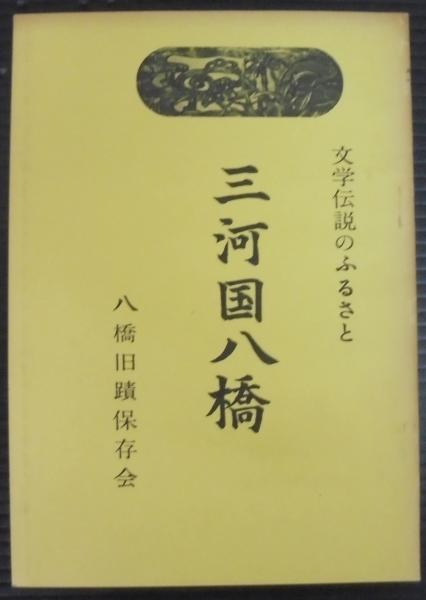 文学伝説のふるさと
三河国八橋
八橋旧蹟保存会